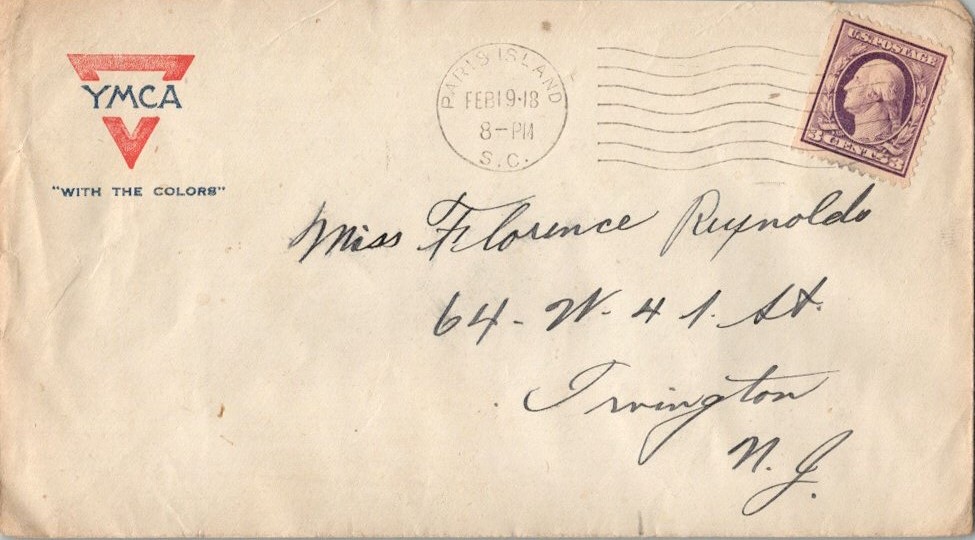 YMCA
"WITH THE COLORS"
PARIS ISLAND
FEB 19·18
8-PM
S.C.
U.S. POSTAGE
3 CENTS 3
Miss Florence Reynolds
64 - W - 41. St.
Irvington
N. J.